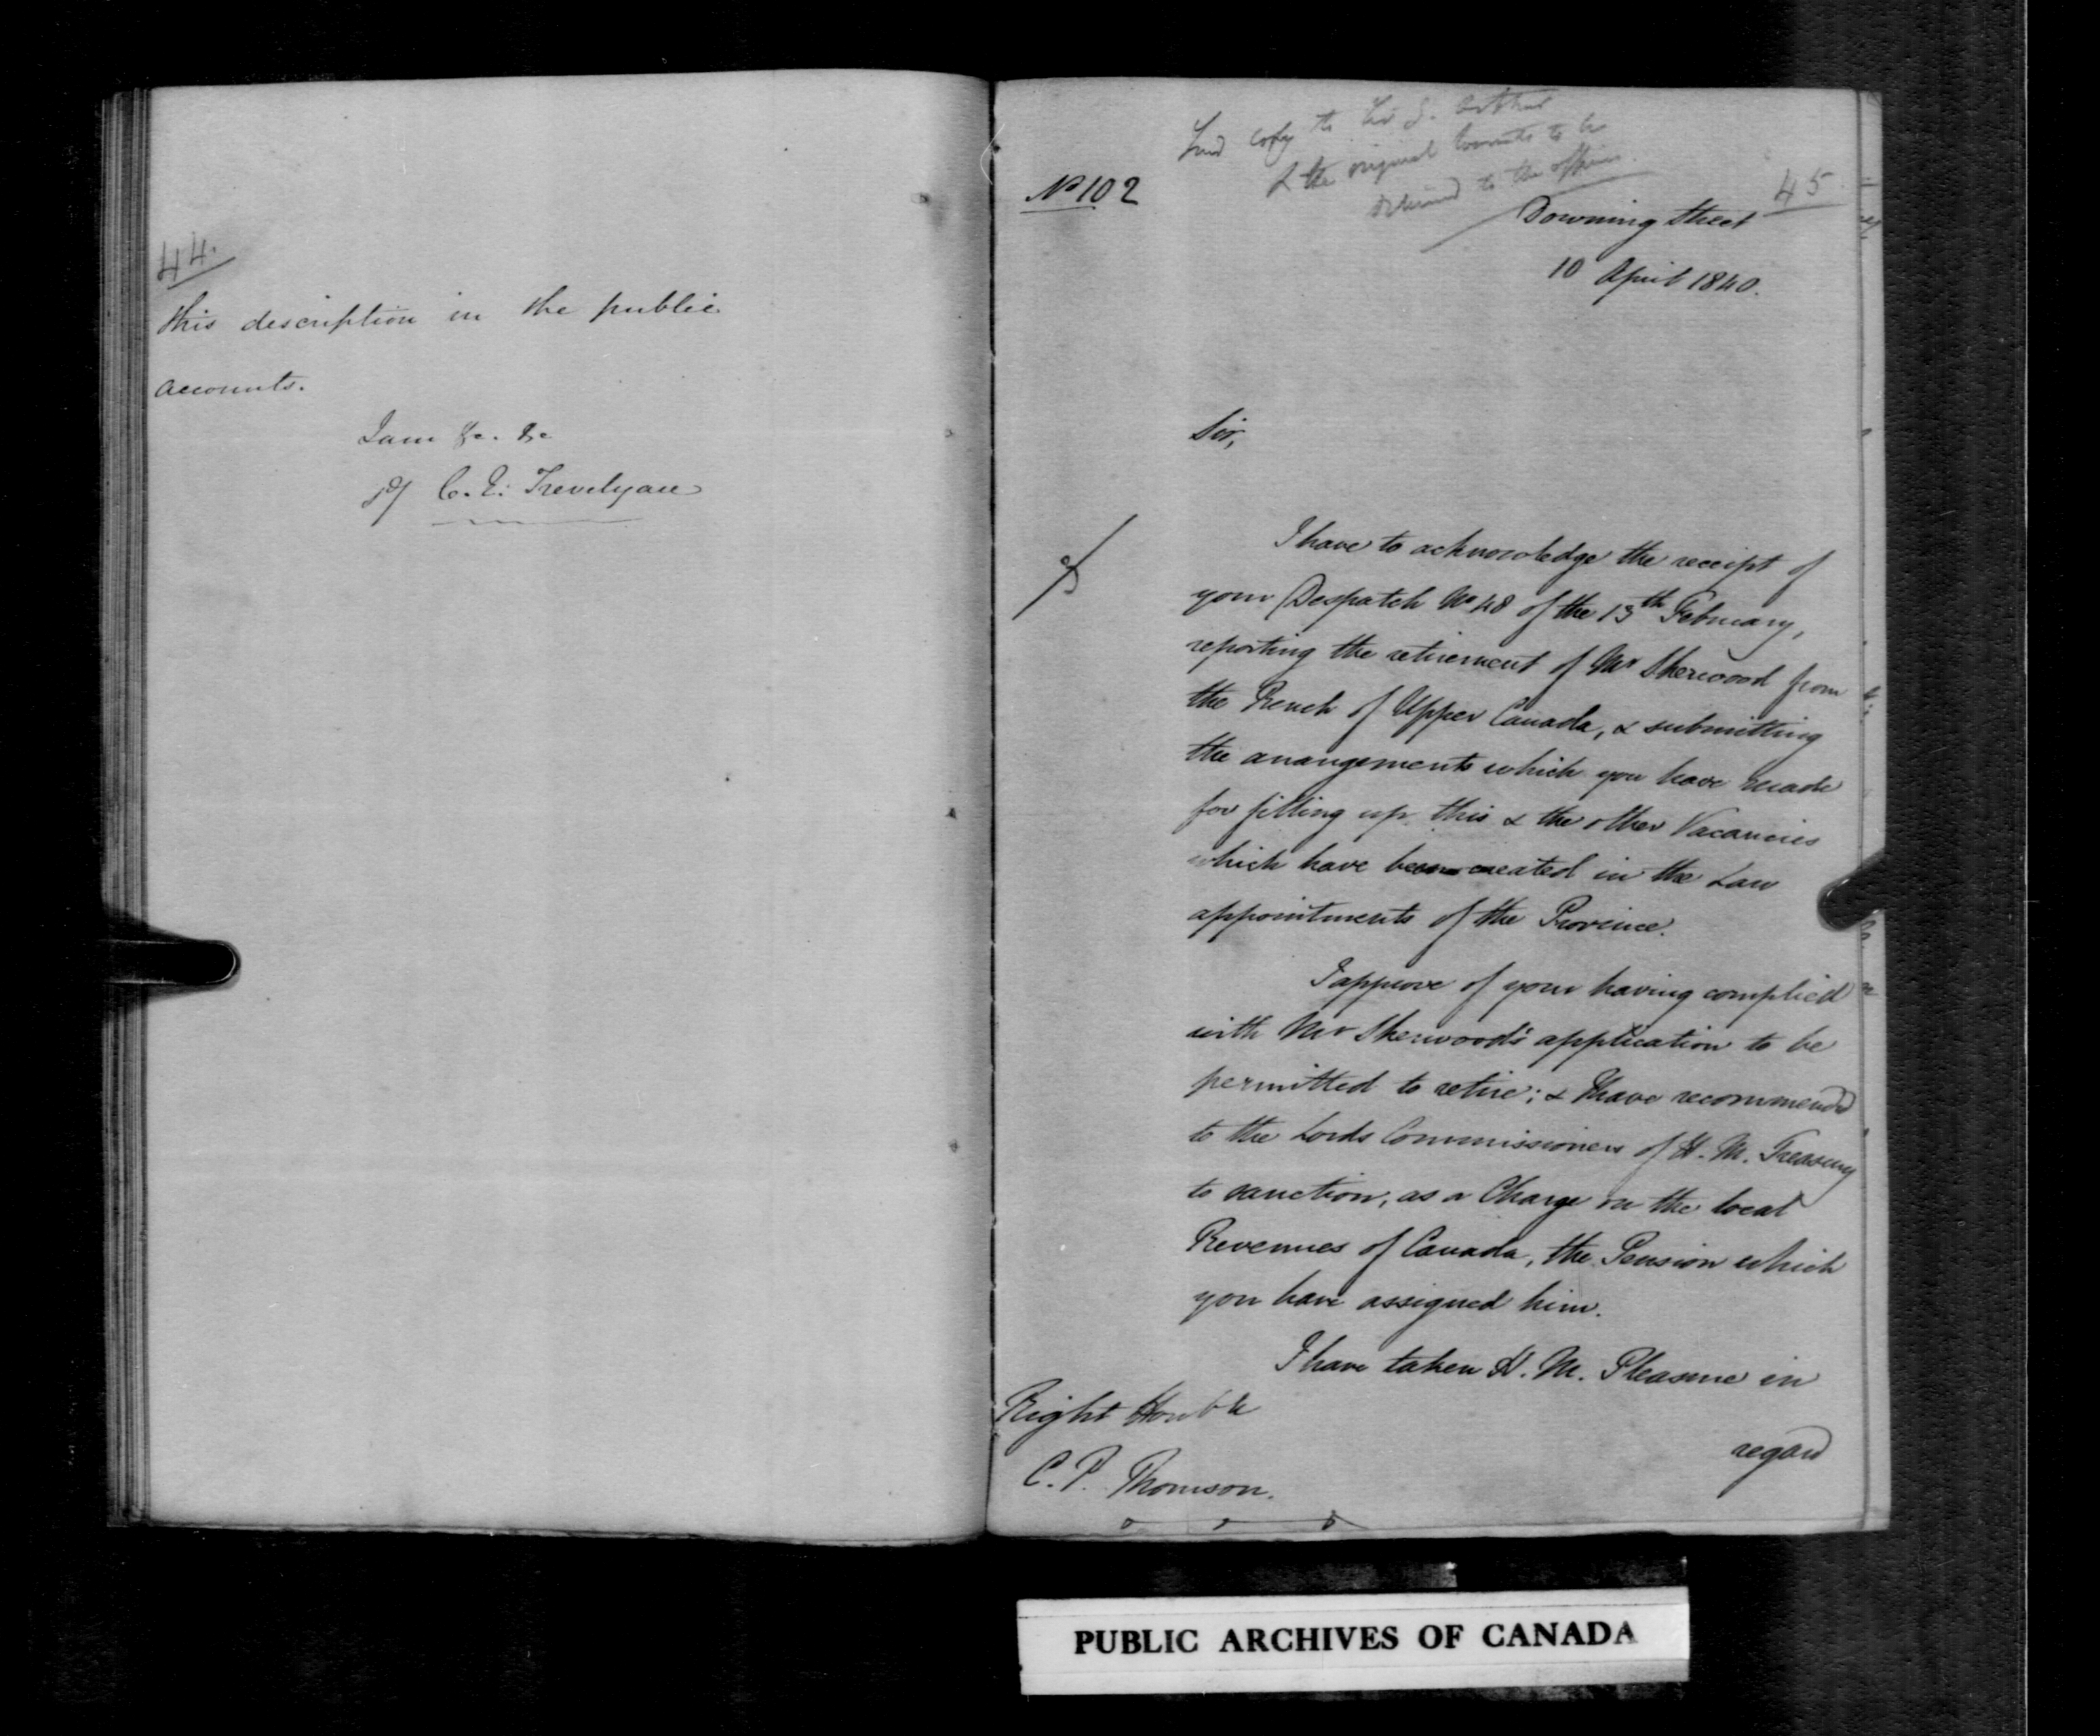 44.
this description in the public
accounts.
I am &c. &c
C. E. Trevelyan
Send copy to Sir G. Arthur
& the original to be
returned to the office.
45
No 102
Downing Street
10 April 1840.
Sir,
I have to acknowledge the receipt of
your Despatch No 48 of the 13th February,
reporting the retirement of Mr Sherwood from
the Bench of Upper Canada, & submitting
the arrangements which you have made
for filling up this & the other Vacancies
which have been created in the Law
appointments of the Province.
I approve of your having complied
with Mr Sherwood's application to be
permitted to retire; & I have recommended
to the Lords Commissioners of H. M. Treasury
to sanction, as a Charge on the local
Revenues of Canada, the Pension which
you have assigned him.
I have taken H. M. Pleasure in
regard
Right Honble
C. P. Thomson.
PUBLIC ARCHIVES OF CANADA